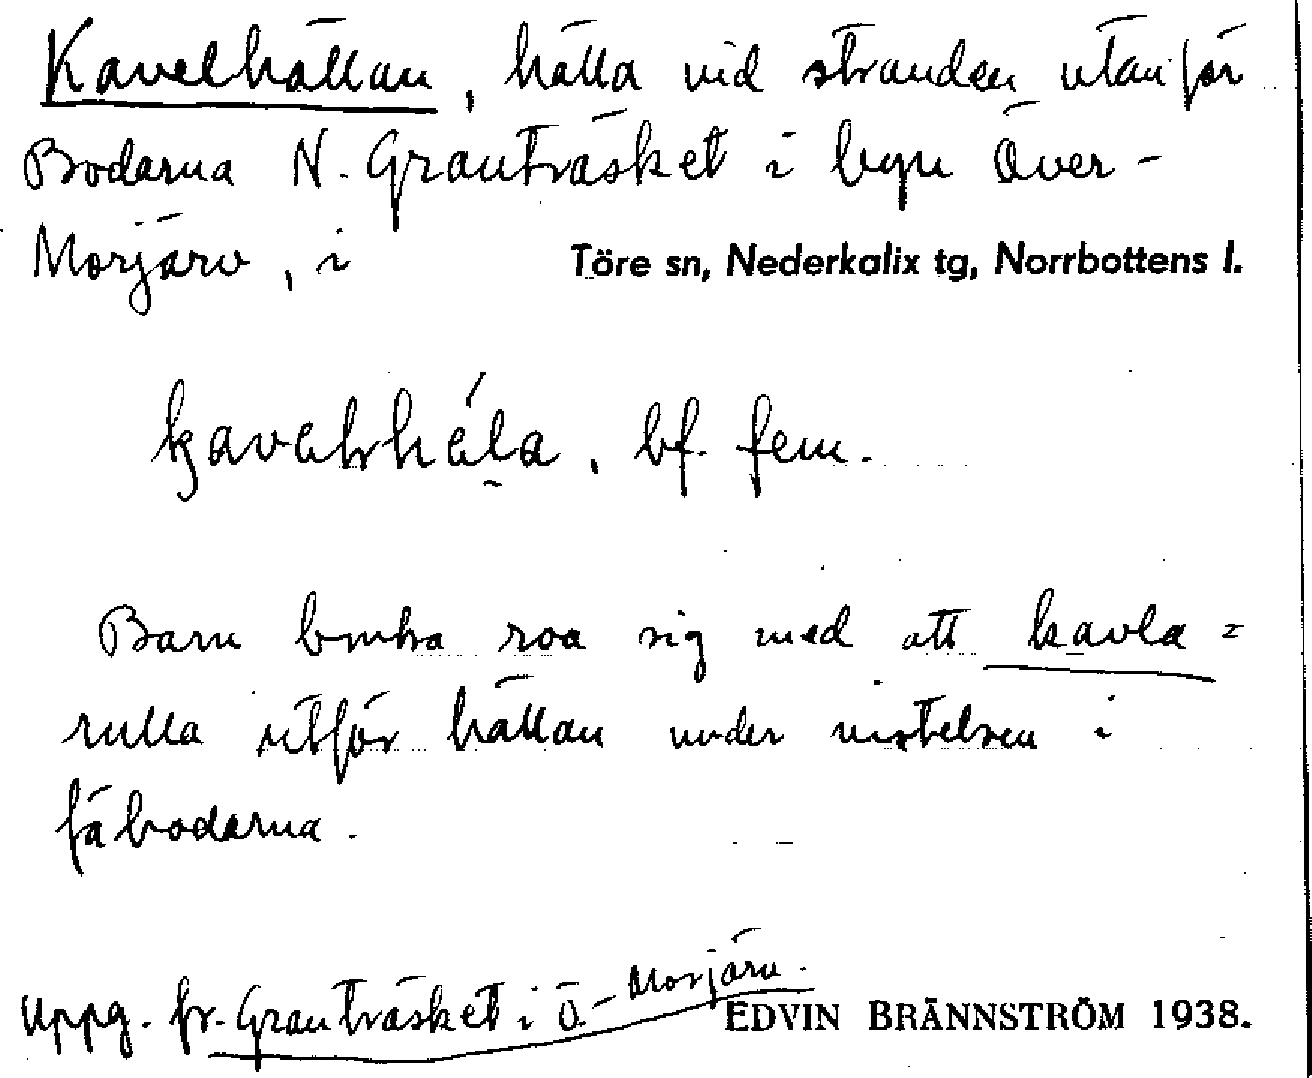 Kavelhällan, hälla vid stranden utanför
Bodarna N. Granträsket i byn Över-
Morjärv, i Töre sn, Nederkalix tg, Norrbottens l.
bf. fem.
Barn bruka roa sig med att kavla =
rulla utför hällan under vistelsen i
fäbodarna.
Uppg. fr. Granträsket i Ö.-Morjärv. EDVIN BRÄNNSTRÖM 1938.